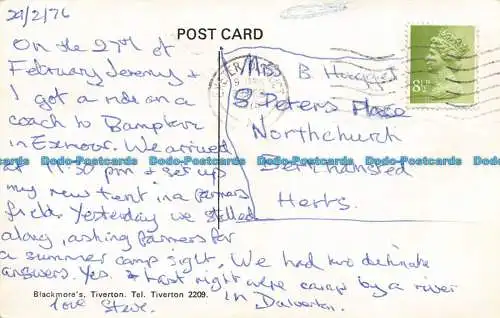 29/2/76
POST CARD
On the 27th of
February Jeremy &
I got a ride on a
coach to Bampton
in Exmoor. We arrived
at 11.30 pm & set up
my new tent in a farmers
field. Yesterday we
along, asking farmers for
a summer camp sight. We had two definate
answers. Yes. & last night were camp by a river
love Steve. in Dulverton.
Miss B.
8 St Peters Place
Northchurch
Berkhamsted
Herts.
EXETER
8½P
Dodo-Postcards Dodo-Postcards Dodo-Postcards Dodo-Postcards Dodo-Postcards
Blackmore's, Tiverton. Tel. Tiverton 2209.